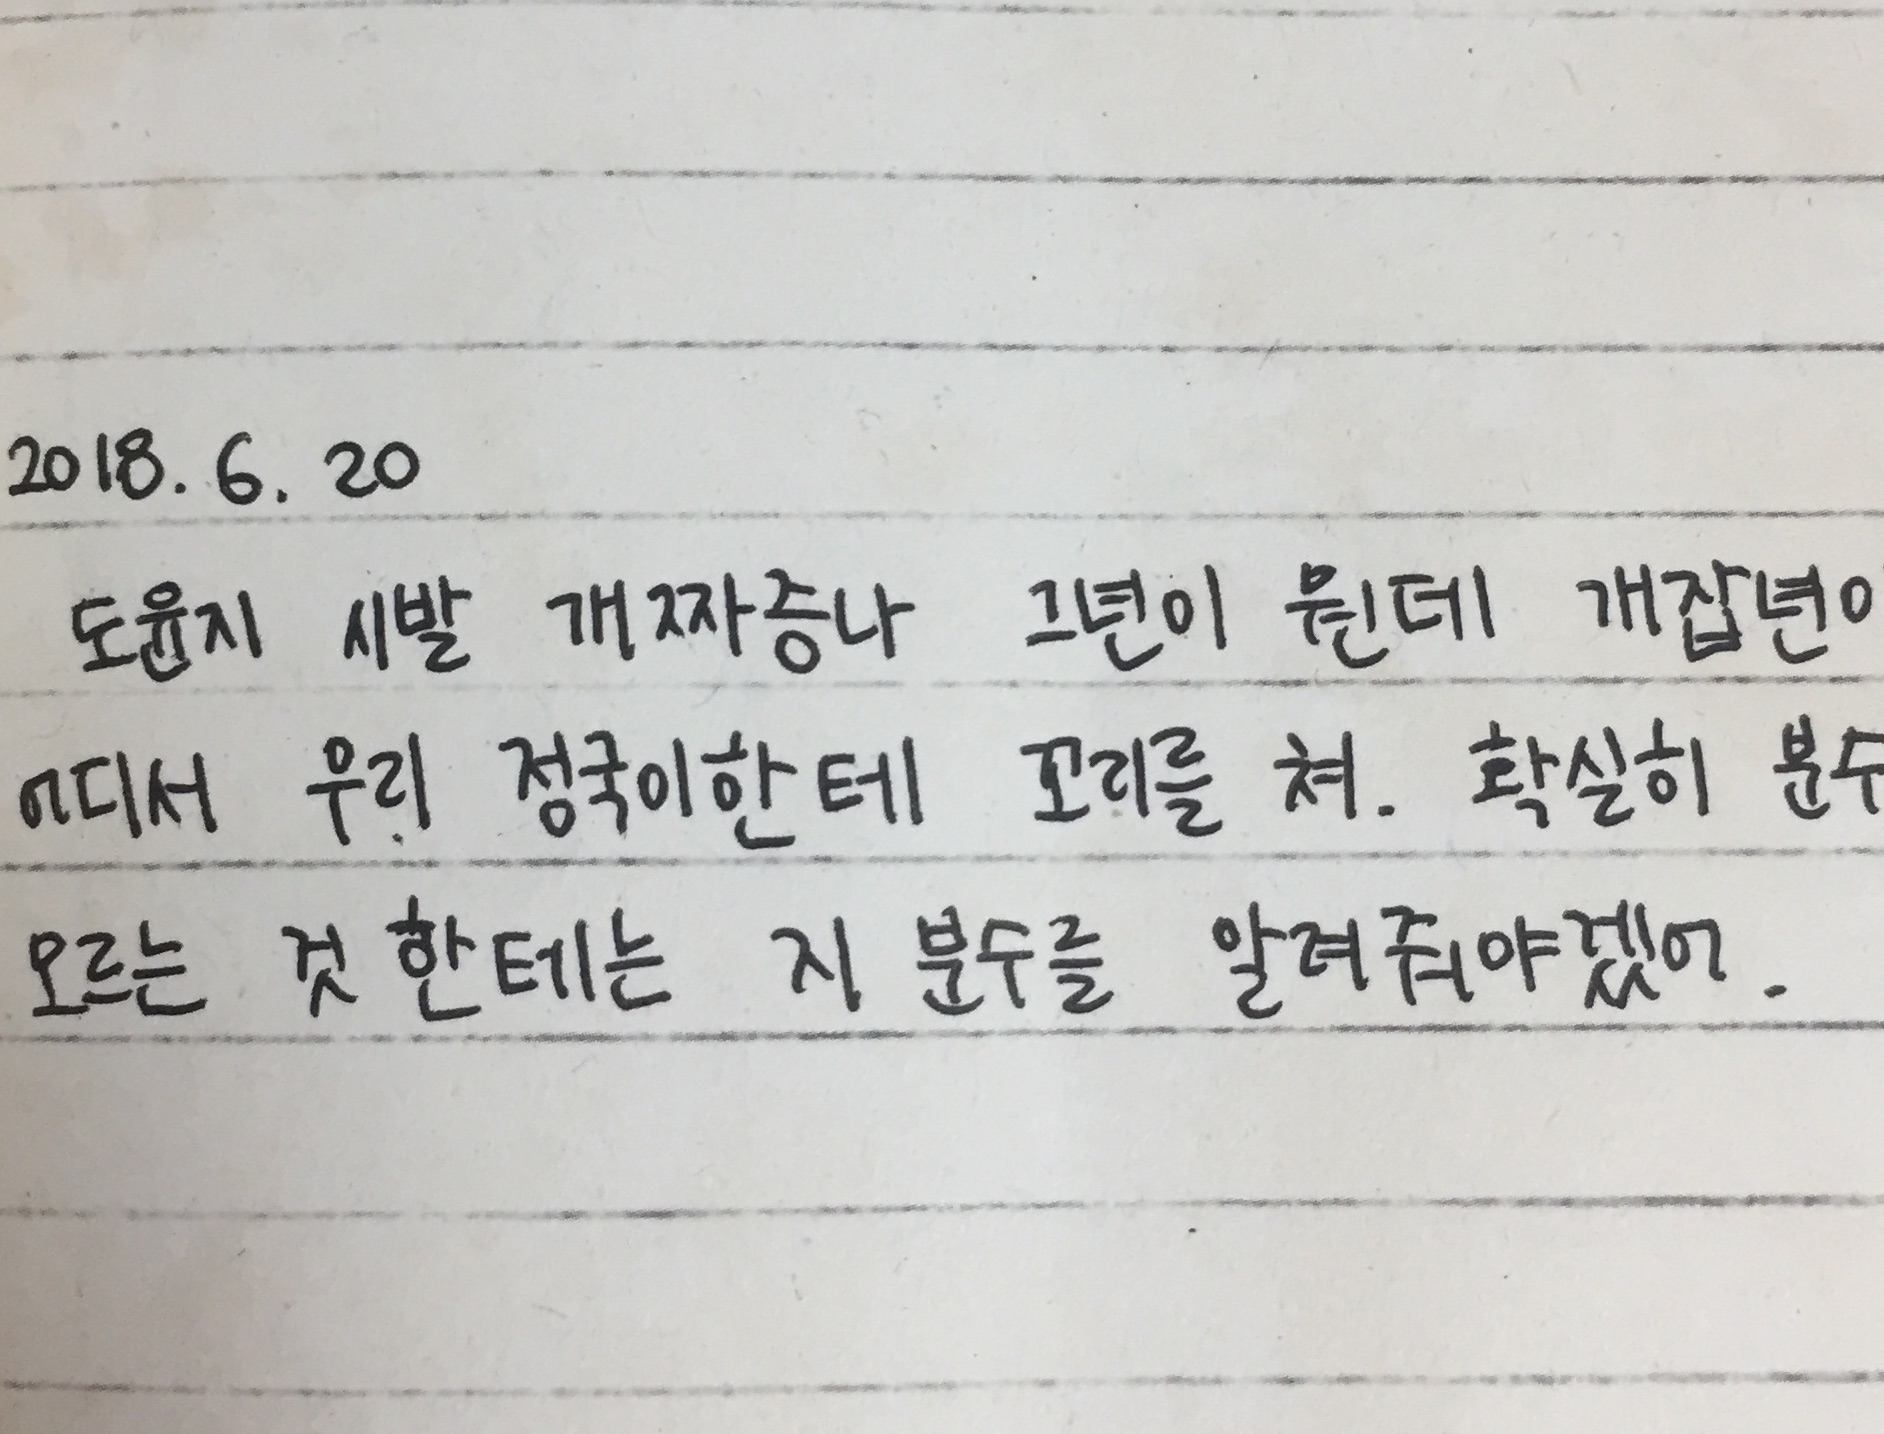 2018. 6. 20
도윤지 시발 개짜증나 그년이 뭔데 개잡년이
어디서 우리 정국이한테 꼬리를 쳐. 확실히 분수
모르는 것 한테는 지 분수를 알려줘야겠어.